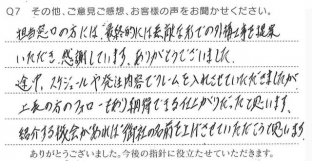 Q7 その他、ご意見ご感想、お客様の声をお聞かせください。
担当窓口の方には、最終的には素敵な形での引揚工事を提案
いただき、感謝しています。ありがとうございました。
途中、スケジュールや発注内容でクレームを入れさせていただきましたが
上長の方のフォローもあり納得できる仕上がりだったと思います。
紹介する機会があれば御社の名前を上げさせていただこうと思います
ありがとうございました。今後の指針に役立たせていただきます。